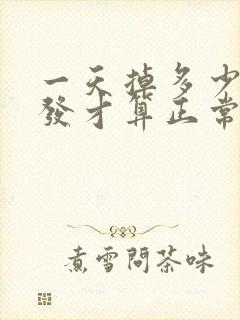 一天掉多少
發才算正常
煮雪問茶味